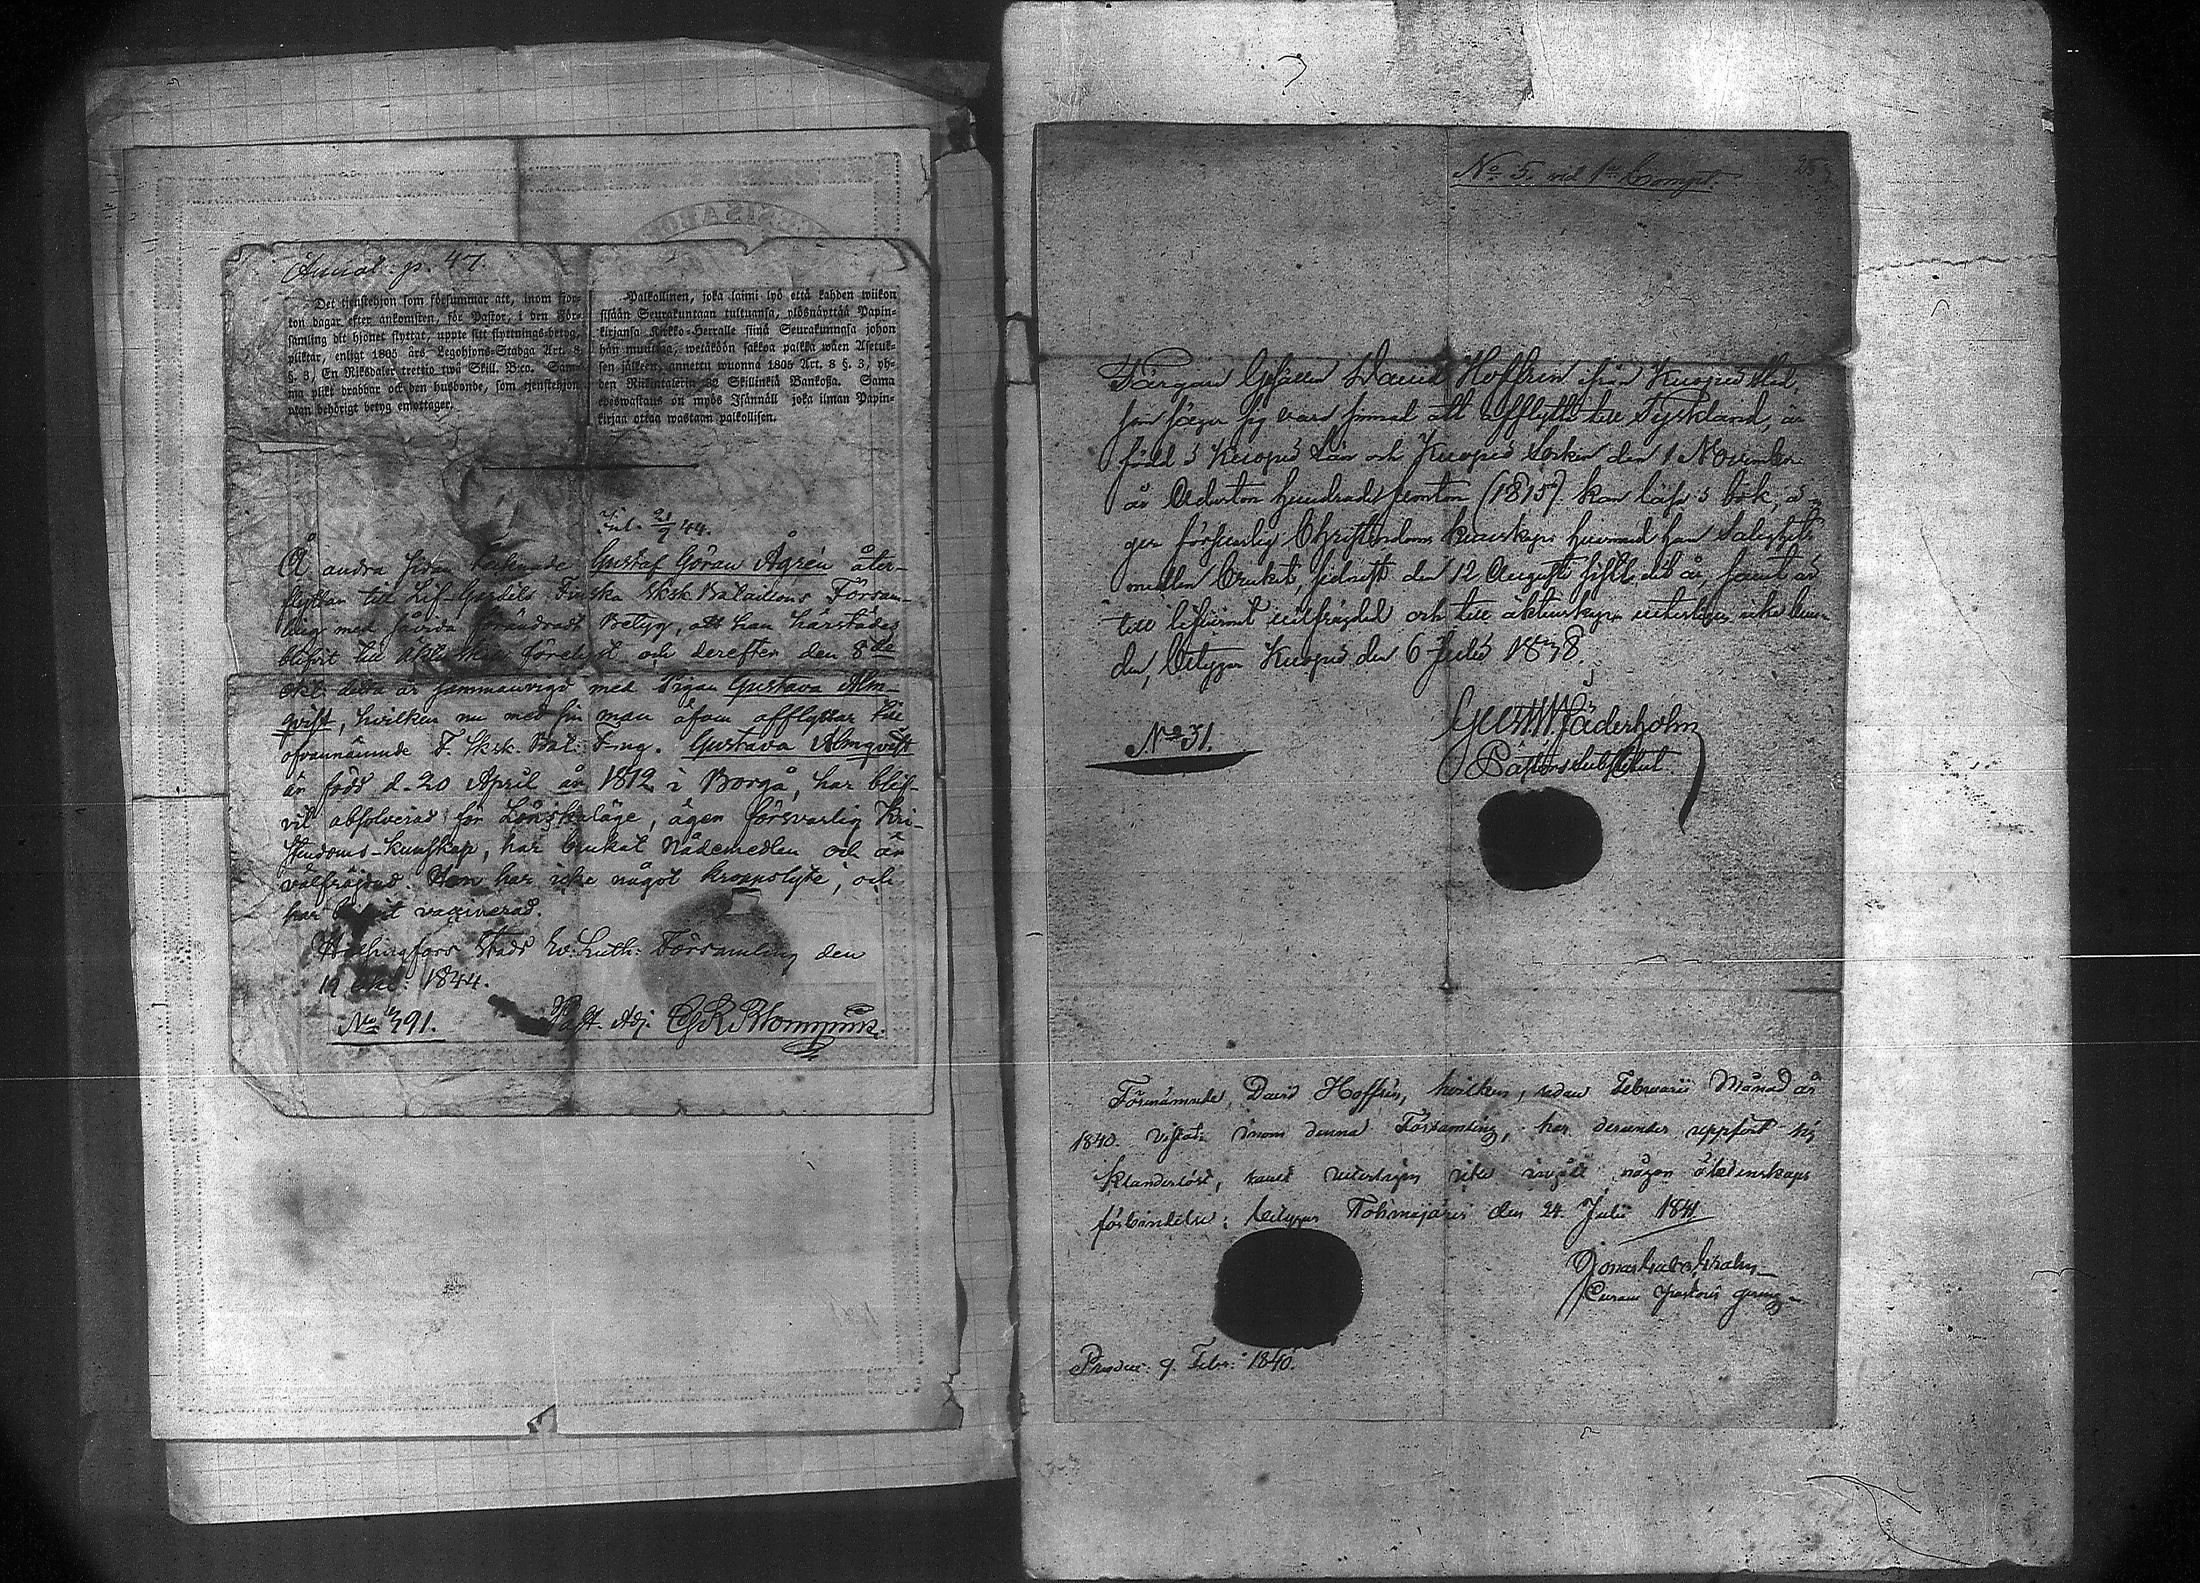 Annot. p. 47.
Det tjenstehjon som försummar att, inom fjor-
ton dagar efter ankomsten, för Pastor, i den För-
samling dit hjonet flyttat, uppte sitt flyttnings-betyg,
pliktar, enligt 1805 års Legohjons-Stadga Art. 8
§. 3, En Riksdaler trettio twå Skill. B:co. Sam-
ma plikt drabbar ock den husbonde, som tjenstehjon
utan behörigt betyg emottager.
Palkollinen, joka laimi lyö että kahden wiikon
sisään Seurakuntaan tultuansa, ylösnäyttää Papin-
kirjansa Kirkko-Herralle siinä Seurakunnasa johon
hän muuttaa, wetäköön sakkoa palkka wäen Asetuk-
sen jälkeen, annettu wuonna 1805 Art. 8 §. 3, yh-
den Riksintalerin 32 Skillinkiä Bankosa. Sama
edeswastaus on myös Isännäll joka ilman Papin-
kirjaa ottaa wastaan palkollisen.
Inl. 21/9 44.
Å andra sidan tecknade Gustaf Göran Ågrén åter-
flyttar till Lif-Gardets Finska Sksk. Bataillons Försam-
ling med sådan förändradt Betyg, att han härstädes
blifvit till äktenskap förelyst och derefter den 8de
detta år sammanvigd med Pigan Gustava Alm-
qvist, hvilken nu med sin man äfven afflyttar till
ofvannämnde F. Sksk. Bat. F-ng. Gustava Almqvist
är född d. 20 April år 1812 i Borgå, har blif-
vit absolverad för Lönskaläge, ägen försvarlig Kri-
stendoms-Kunskap, har brukat Nådemedlen och är
välfräjdad. Hon har icke något kroppslyte, och
har blifvit vaccinerad.
Helsingfors Stads Ev. Luth: Församling den
19 1844.
No 391.
Past. Adj.
No 5. vid 1ste Compt.
25
Färgare Gesällen David Hoffrén ifrån Kuopio Stad,
som säger sig vara sinnad att afflytta till Tyskland, är
född i Kuopio Län och Kuopio Socken den 1 November
år Aderton hundrade femton (1815) kan läsa i bok, ä-
ger försvarlig Christendoms kunskap, hvarmed han Salighets
medlen brukat, sednast den 12 Augusti sistledit år, samt är
till lefvernet välfrägdad och till äktenskapen veterligen icke bun-
den, betygar Kuopio den 6 Julii 1838.
No 31.
Gust. W. Söderholm
Pastors Substitut.
Förenämnde David Hoffrén, hvilken, sedan Februarii Månad år
1840 vistats inom denna Församling, har derunder uppfört sig
klanderlöst, samt veterligen icke ingått någon äktenskaps
förbindelse; betygar Tohmajärvi den 24 Julii 1841
Curam Pastoris gerens
Produc: 9. Febr: 1840.